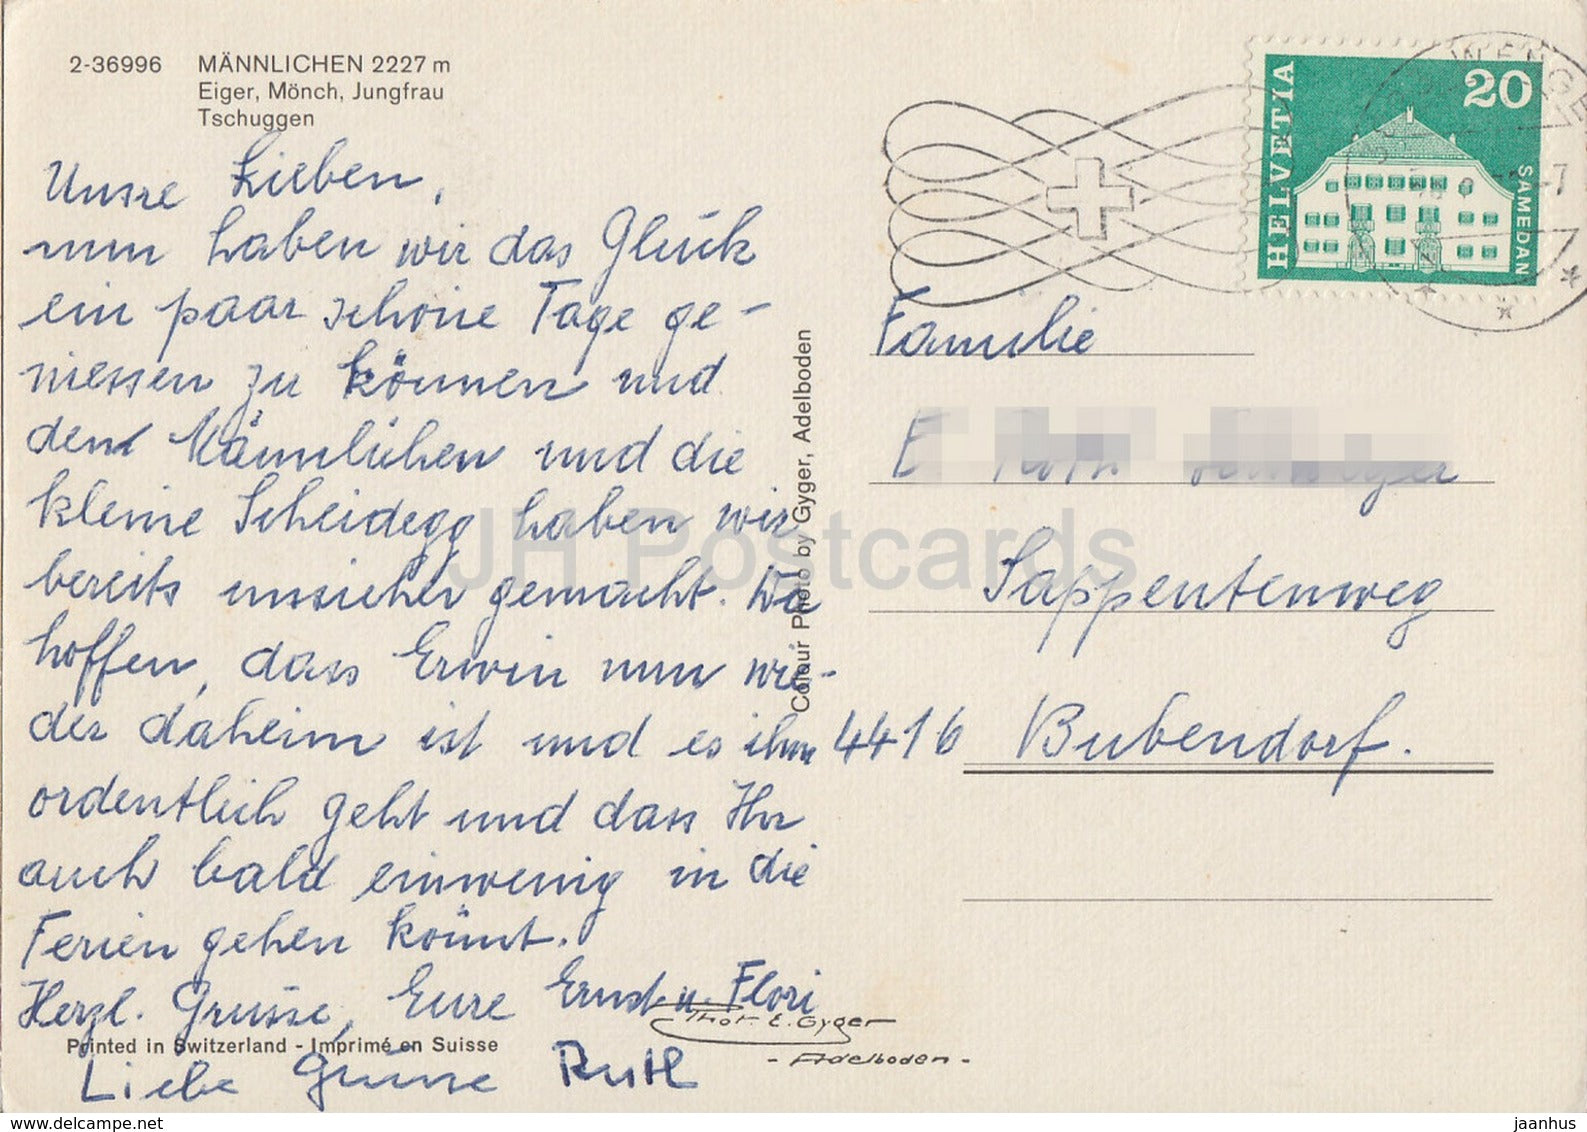 2-36996 MÄNNLICHEN 2227 m
Eiger, Mönch, Jungfrau
Tschuggen
Unsre Lieben,
nun haben wir das Glück
ein paar schöne Tage ge-
niessen zu können und
den Männlichen und die
kleine Scheidegg haben wir
bereits unsicher gemacht. Wir
hoffen, dass Erwin nun wie-
der daheim ist und es ihm
ordentlich geht und dass Ihr
auch bald einwenig in die
Ferien gehen könnt.
Herzl. Grüsse, Eure Ernst u. Flori
Liebe Grüsse Ruth
Printed in Switzerland - Imprimé en Suisse
Phot. E. Gyger
- Adelboden -
Colour Photo by Gyger, Adelboden
HELVETIA
20
SAMEDAN
WENGE
Familie
E
Sappentenweg
4416 Bubendorf.
JH Postcards
www.delcampe.net
jaanhus